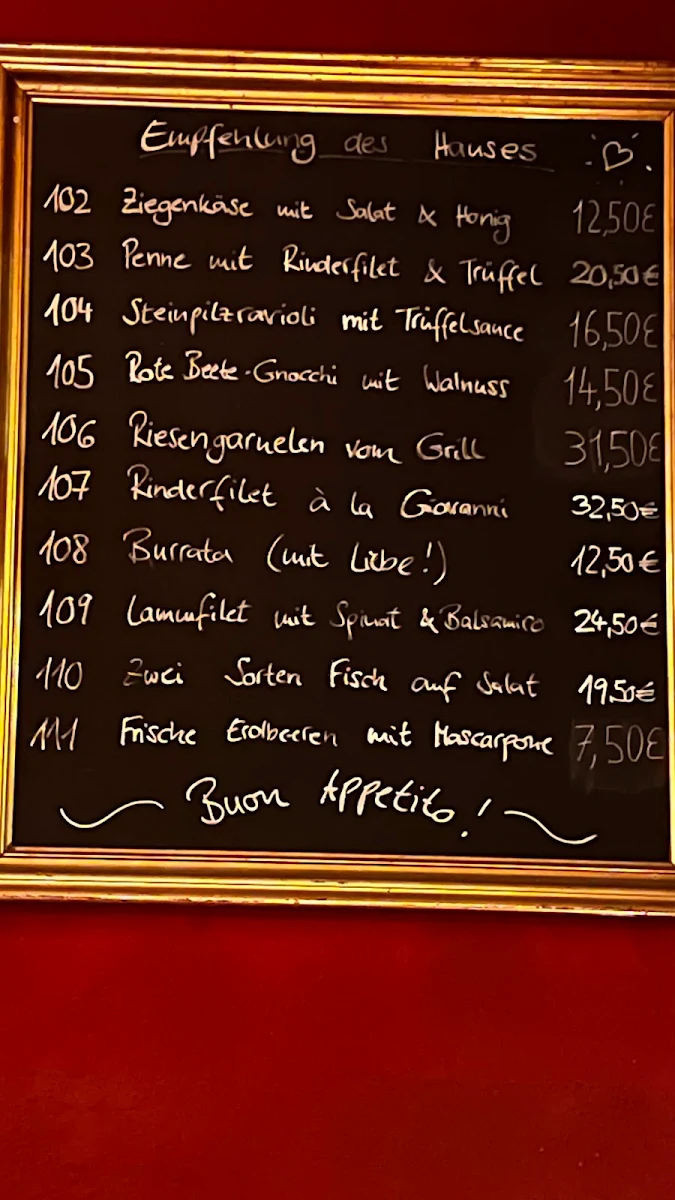 Empfehlung des Hauses
102 Ziegenkäse mit Salat & Honig 12,50€
103 Penne mit Rinderfilet & Trüffel 20,50€
104 Steinpilzravioli mit Trüffelsauce 16,50€
105 Rote Beete-Gnocchi mit Walnuss 14,50€
106 Riesengarnelen vom Grill 31,50€
107 Rinderfilet à la Giovanni 32,50€
108 Burrata (mit Liebe!) 12,50€
109 Lammfilet mit Spinat & Balsamico 24,50€
110 Zwei Sorten Fisch auf Salat 19,50€
111 Frische Erdbeeren mit Mascarpone 7,50€
Buon Appetito!